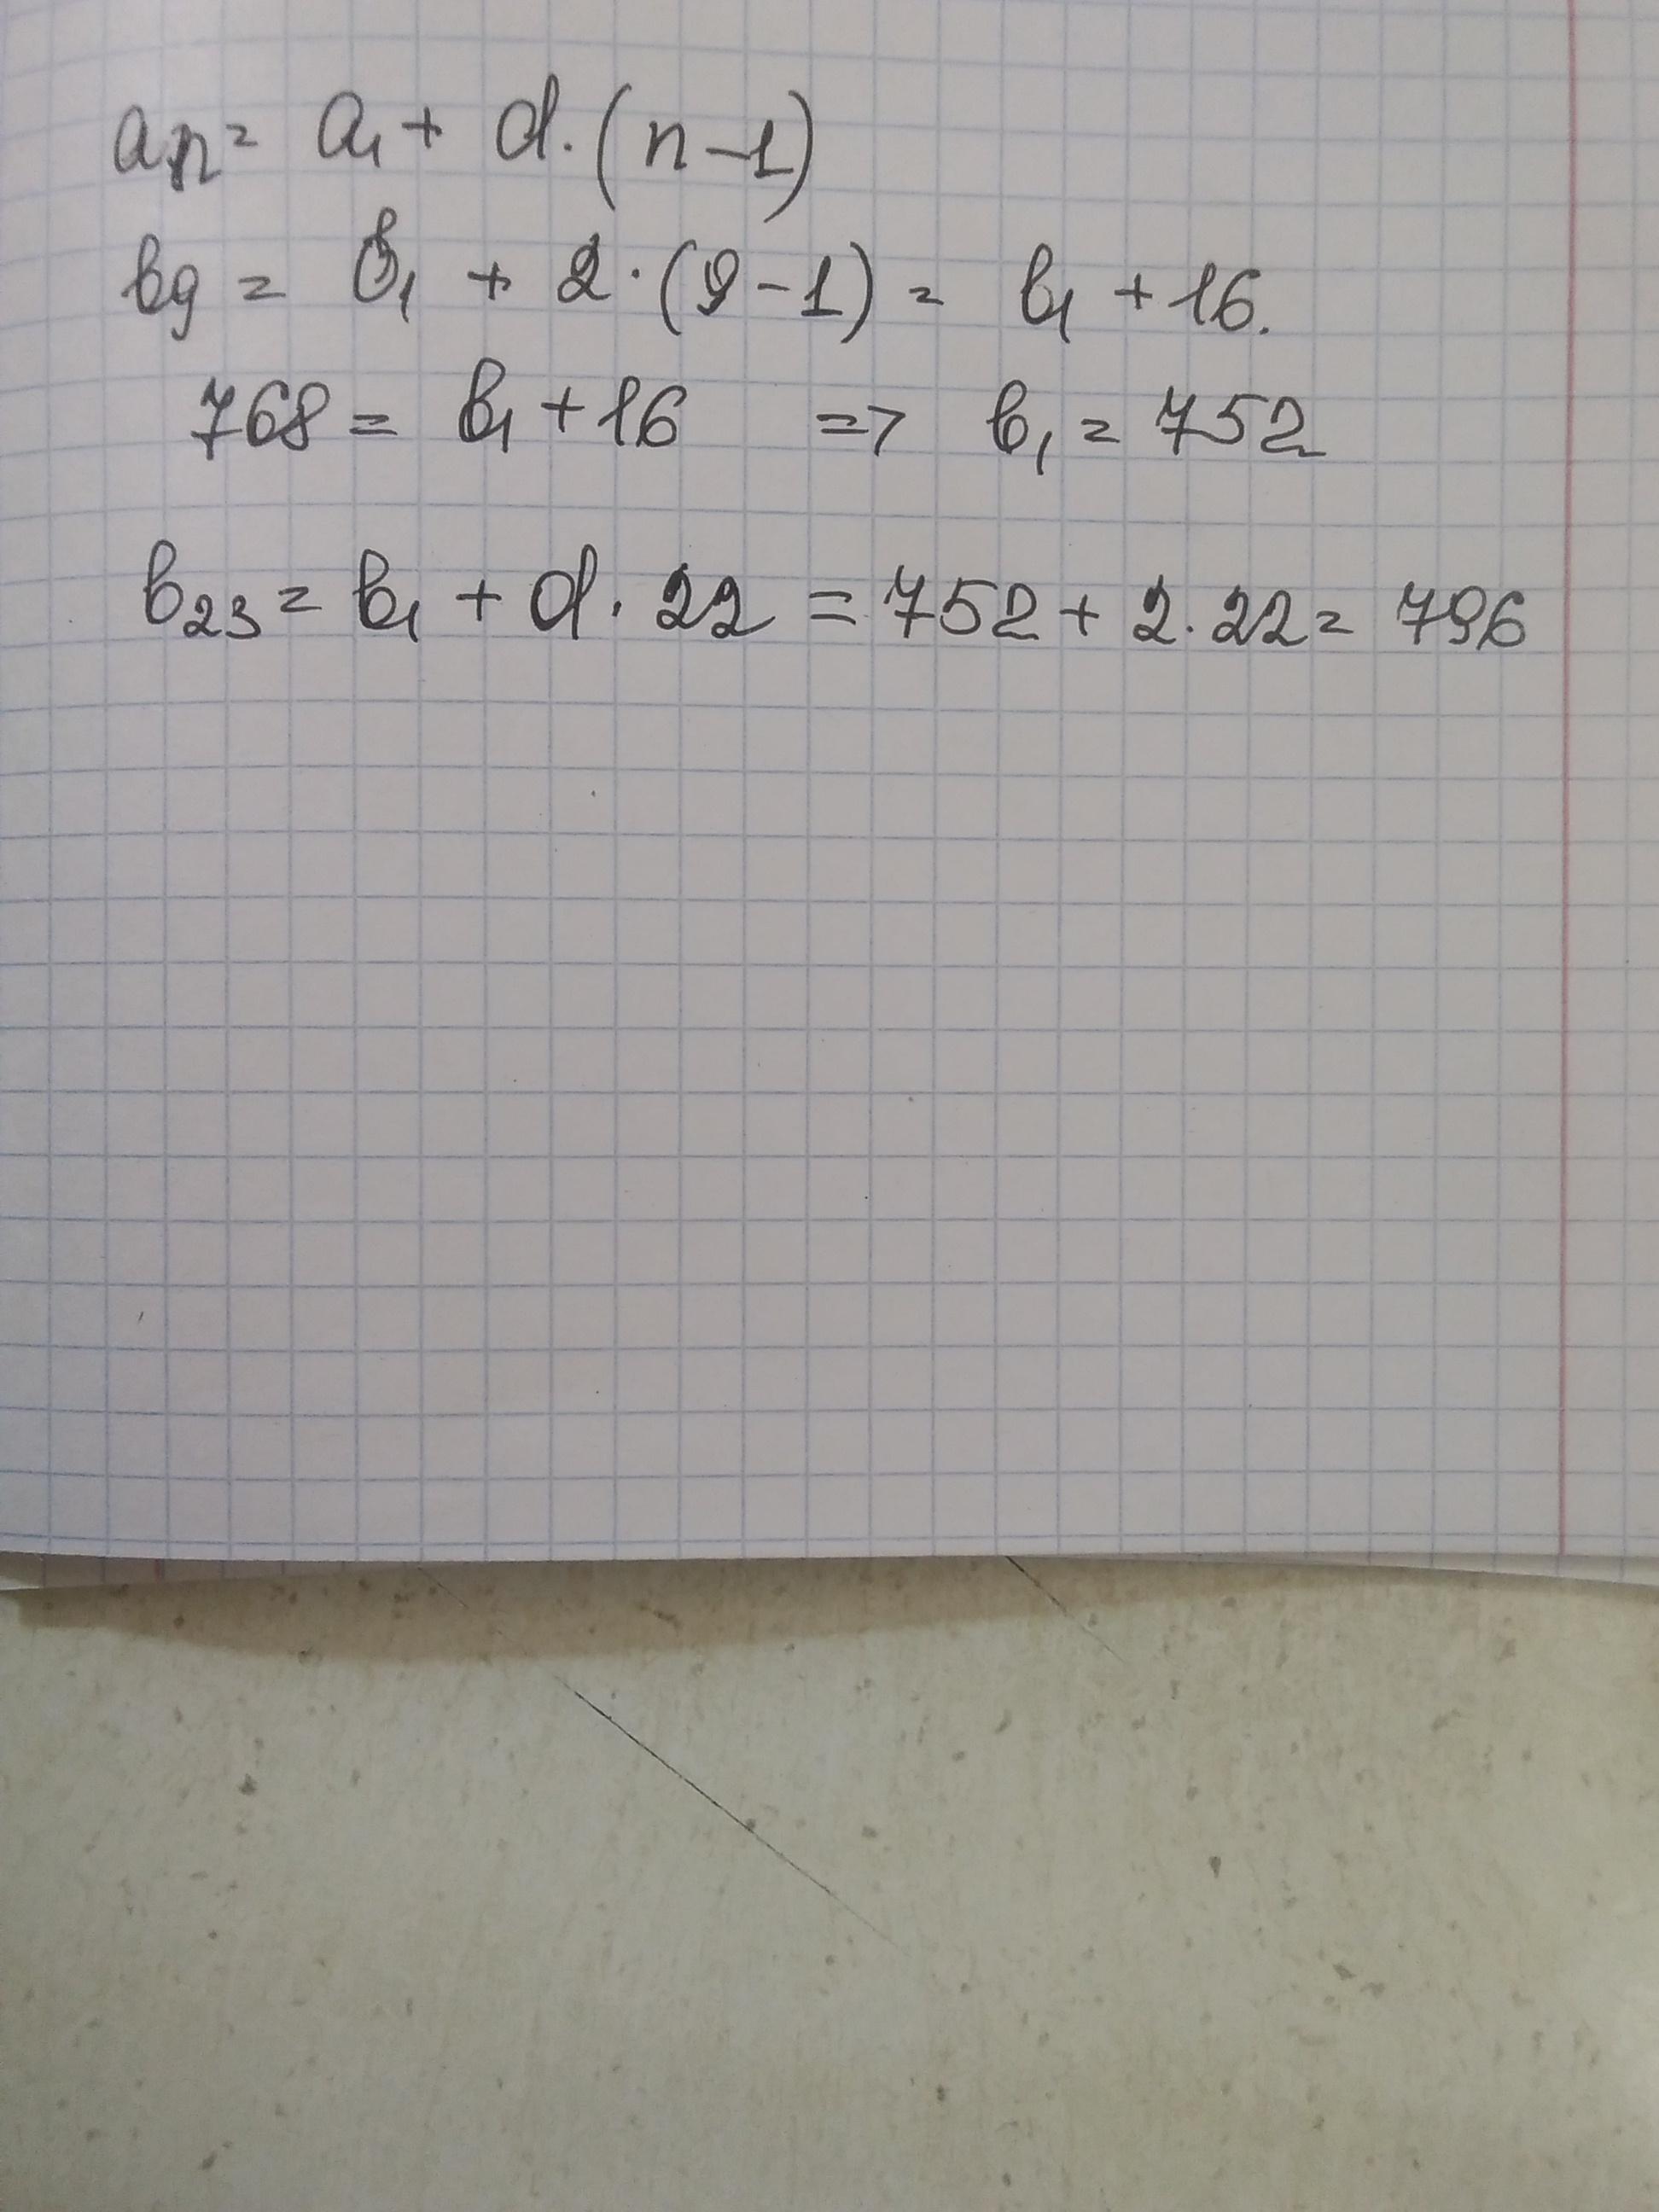 an = a₁ + d·(n-1)
b₉ = b₁ + 2·(9-1) = b₁ + 16.
768 = b₁ + 16 => b₁ = 752
b₂₃ = b₁ + d·22 = 752 + 2·22 = 796